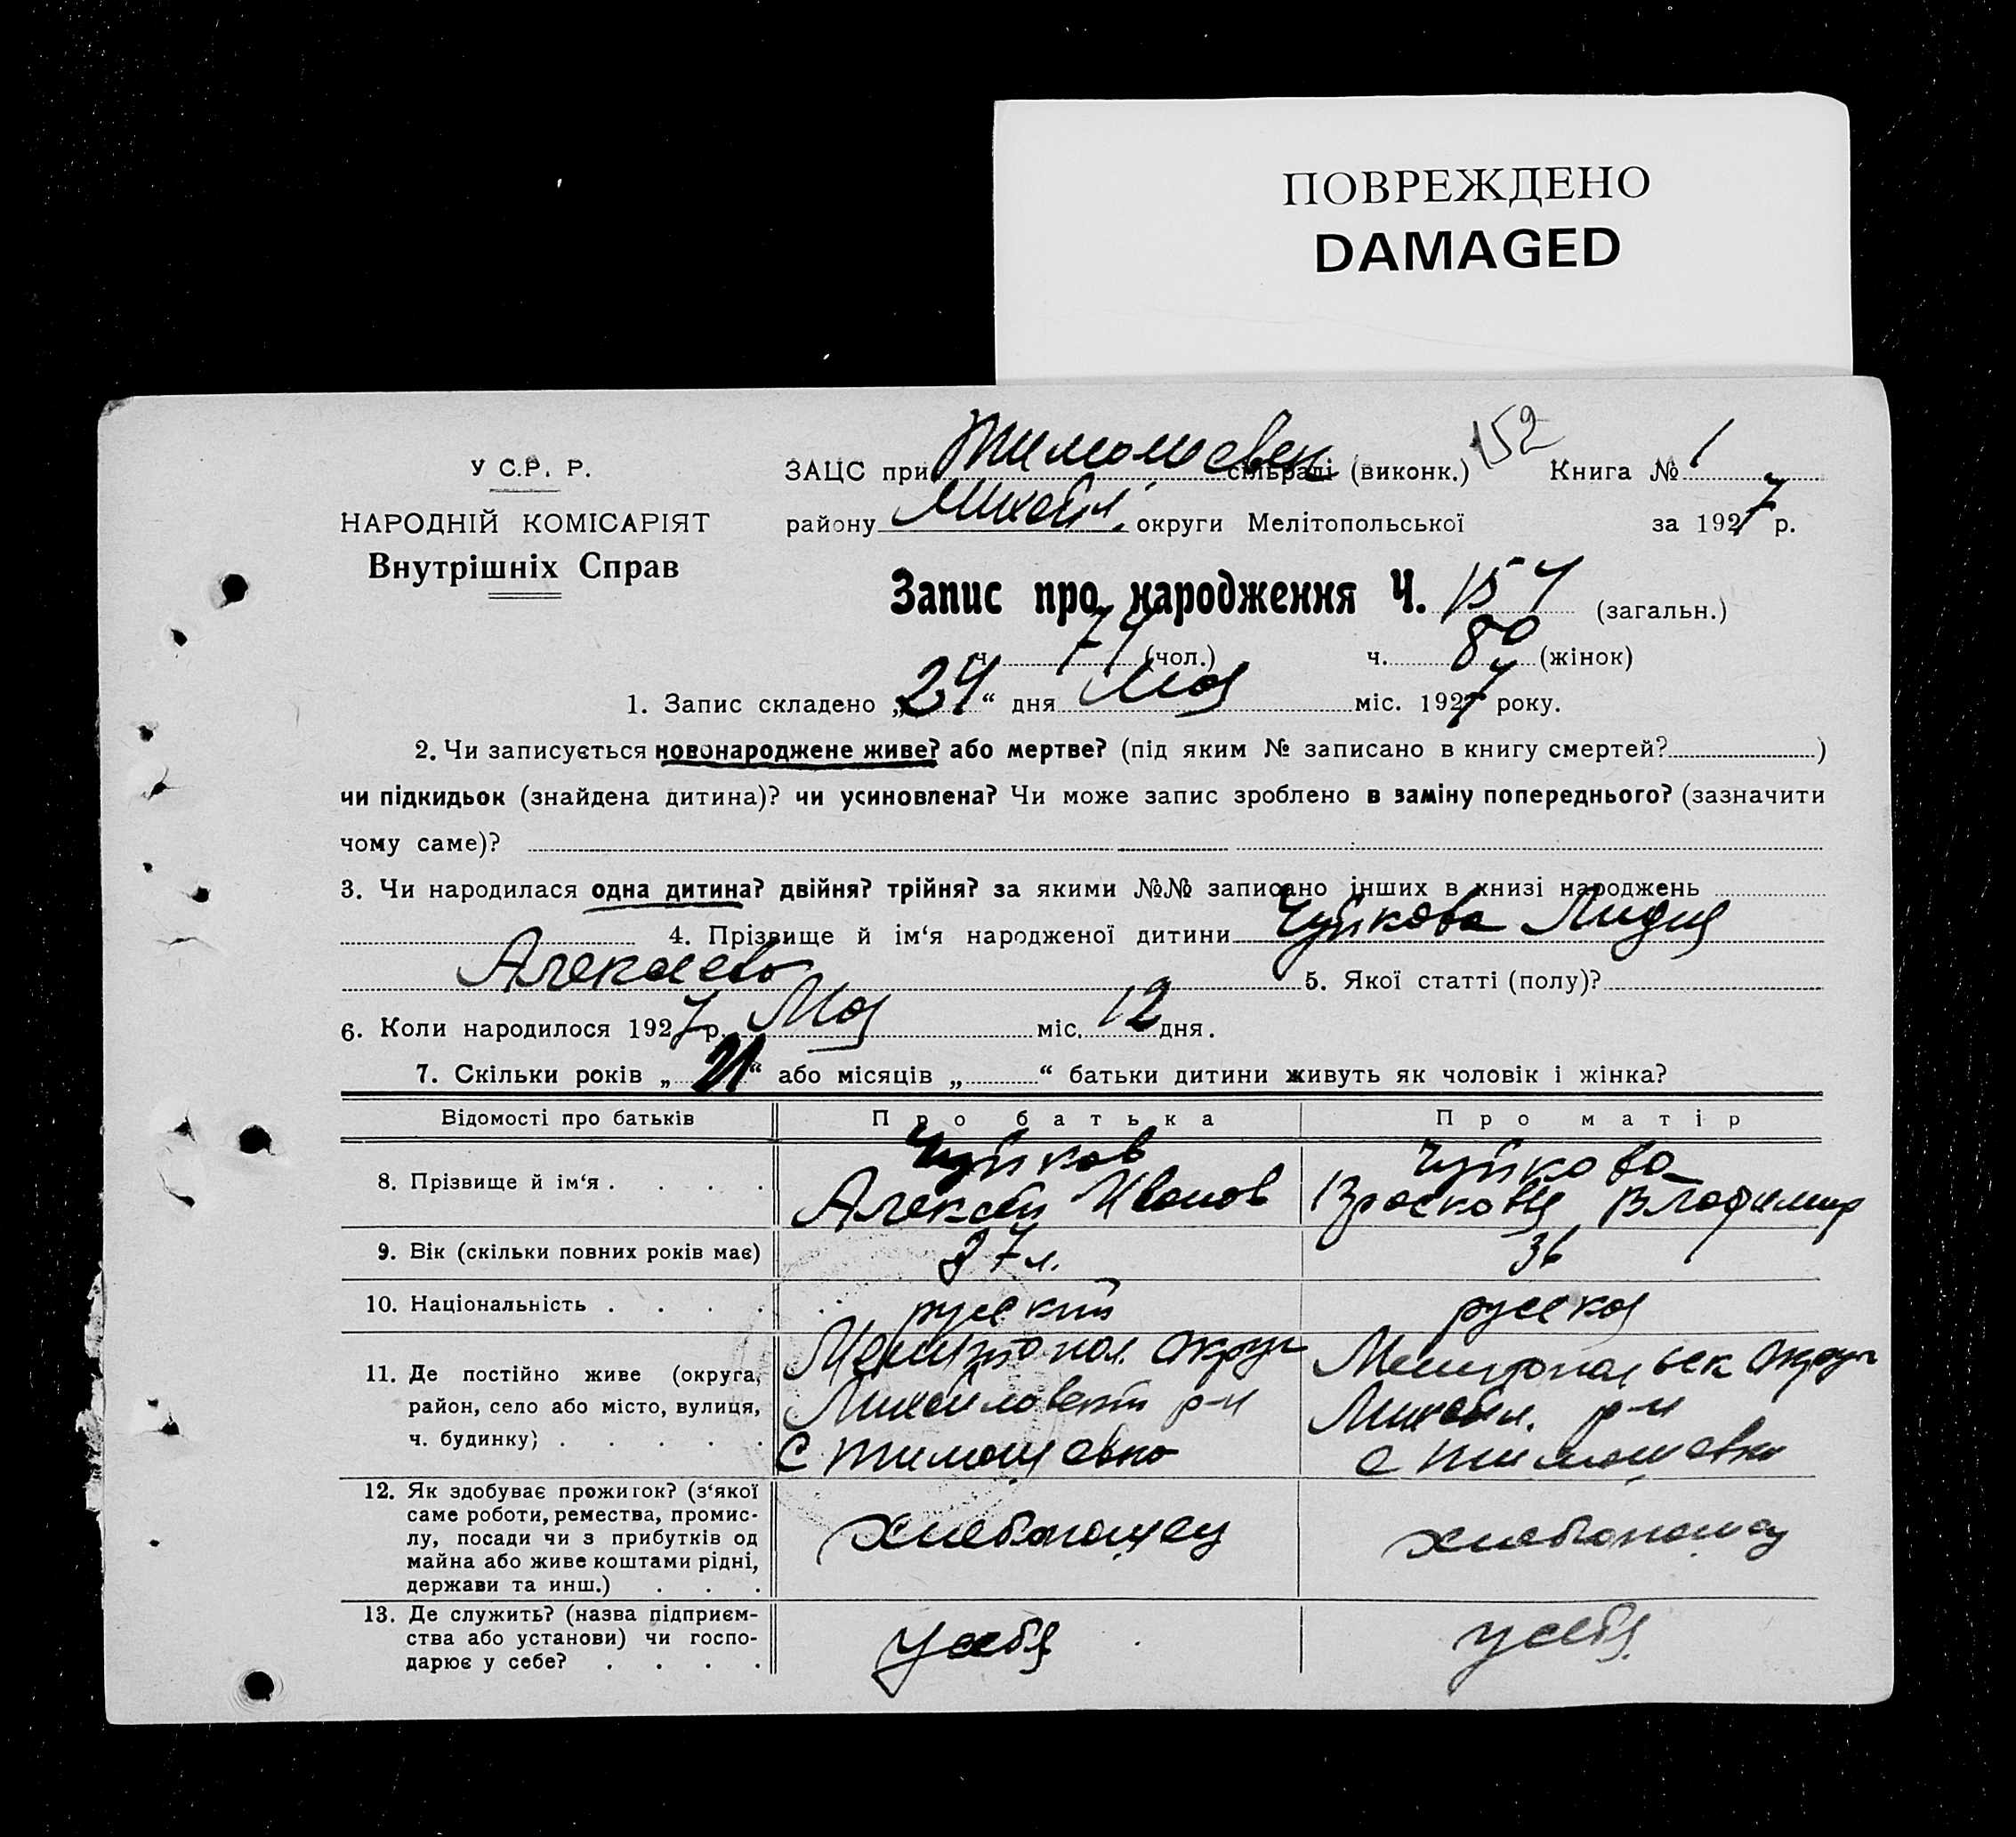 ПОВРЕЖДЕНО
DAMAGED
У С.Р. Р.
НАРОДНІЙ КОМІСАРІЯТ
Внутрішніх Справ
152
ЗАЦС при Тимошовск сільраді (виконк.) Книга № 1
району Михайл. округи Мелітопольської за 1927 р.
Запис про народження Ч. 154 (загальн.)
ч. 74 (чол.) ч. 80 (жінок)
1. Запис складено „24“ дня Мая міс. 1927 року.
2. Чи записується новонароджене живе? або мертве? (під яким № записано в книгу смертей? )
чи підкидьок (знайдена дитина)? чи усиновлена? Чи може запис зроблено в заміну попереднього? (зазначити
чому саме)?
3. Чи народилася одна дитина? двійня? трійня? за якими №№ записано інших в книзі народжень
4. Прізвище й ім‘я народженої дитини Чуйкова Лидия
Алексеев 5. Якої статті (полу)?
6. Коли народилося 1927 р. Мая міс. 12 дня.
7. Скільки років „21“ або місяців „ “ батьки дитини живуть як чоловік і жінка?
Відомості про батьків Про батька Про матір
8. Прізвище й ім‘я . . . . Чуйков Алексей Иванов Чуйкова Просковя Владимир
9. Вік (скільки повних років має) 37 л. 36
10. Національність . . . . русский русская
11. Де постійно живе (округа, Мелитопол. округ Мелитопольск округ
район, село або місто, вулиця, Михайловский р-н Михайл. р-н
ч. будинку) . . . . . С Тимошевка с Тимошевка
12. Як здобуває прожиток? (з‘якої
саме роботи, ремества, промис-
лу, посади чи з прибутків од
майна або живе коштами рідні,
держави та инш.) . . . хлебопашец хлебопашец
13. Де служить? (назва підприєм-
ства або установи) чи госпо-
дарює у себе? . . . . У себя у себя